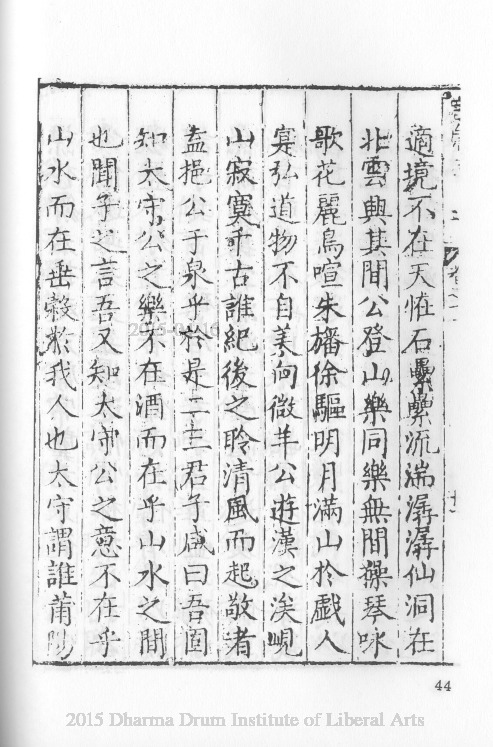 適境不在天恠石纍纍流湍潺潺仙洞在
北雲輿其間公登山樂同樂無間操琴咏
歌花麗鳥喧朱旛徐驅明月滿山於戲人
寔弘道物不自美向微羊公遊漢之涘峴
山寂寞千古誰紀後之聆清風而起敬者
盍挹公于泉乎於是二三君子咸曰吾固
知太守公之樂不在酒而在乎山水之間
也聞子之言吾又知太守公之意不在乎
山水而在垂縠於我人也太守謂誰莆陽
44
2015 Dharma Drum Institute of Liberal Arts